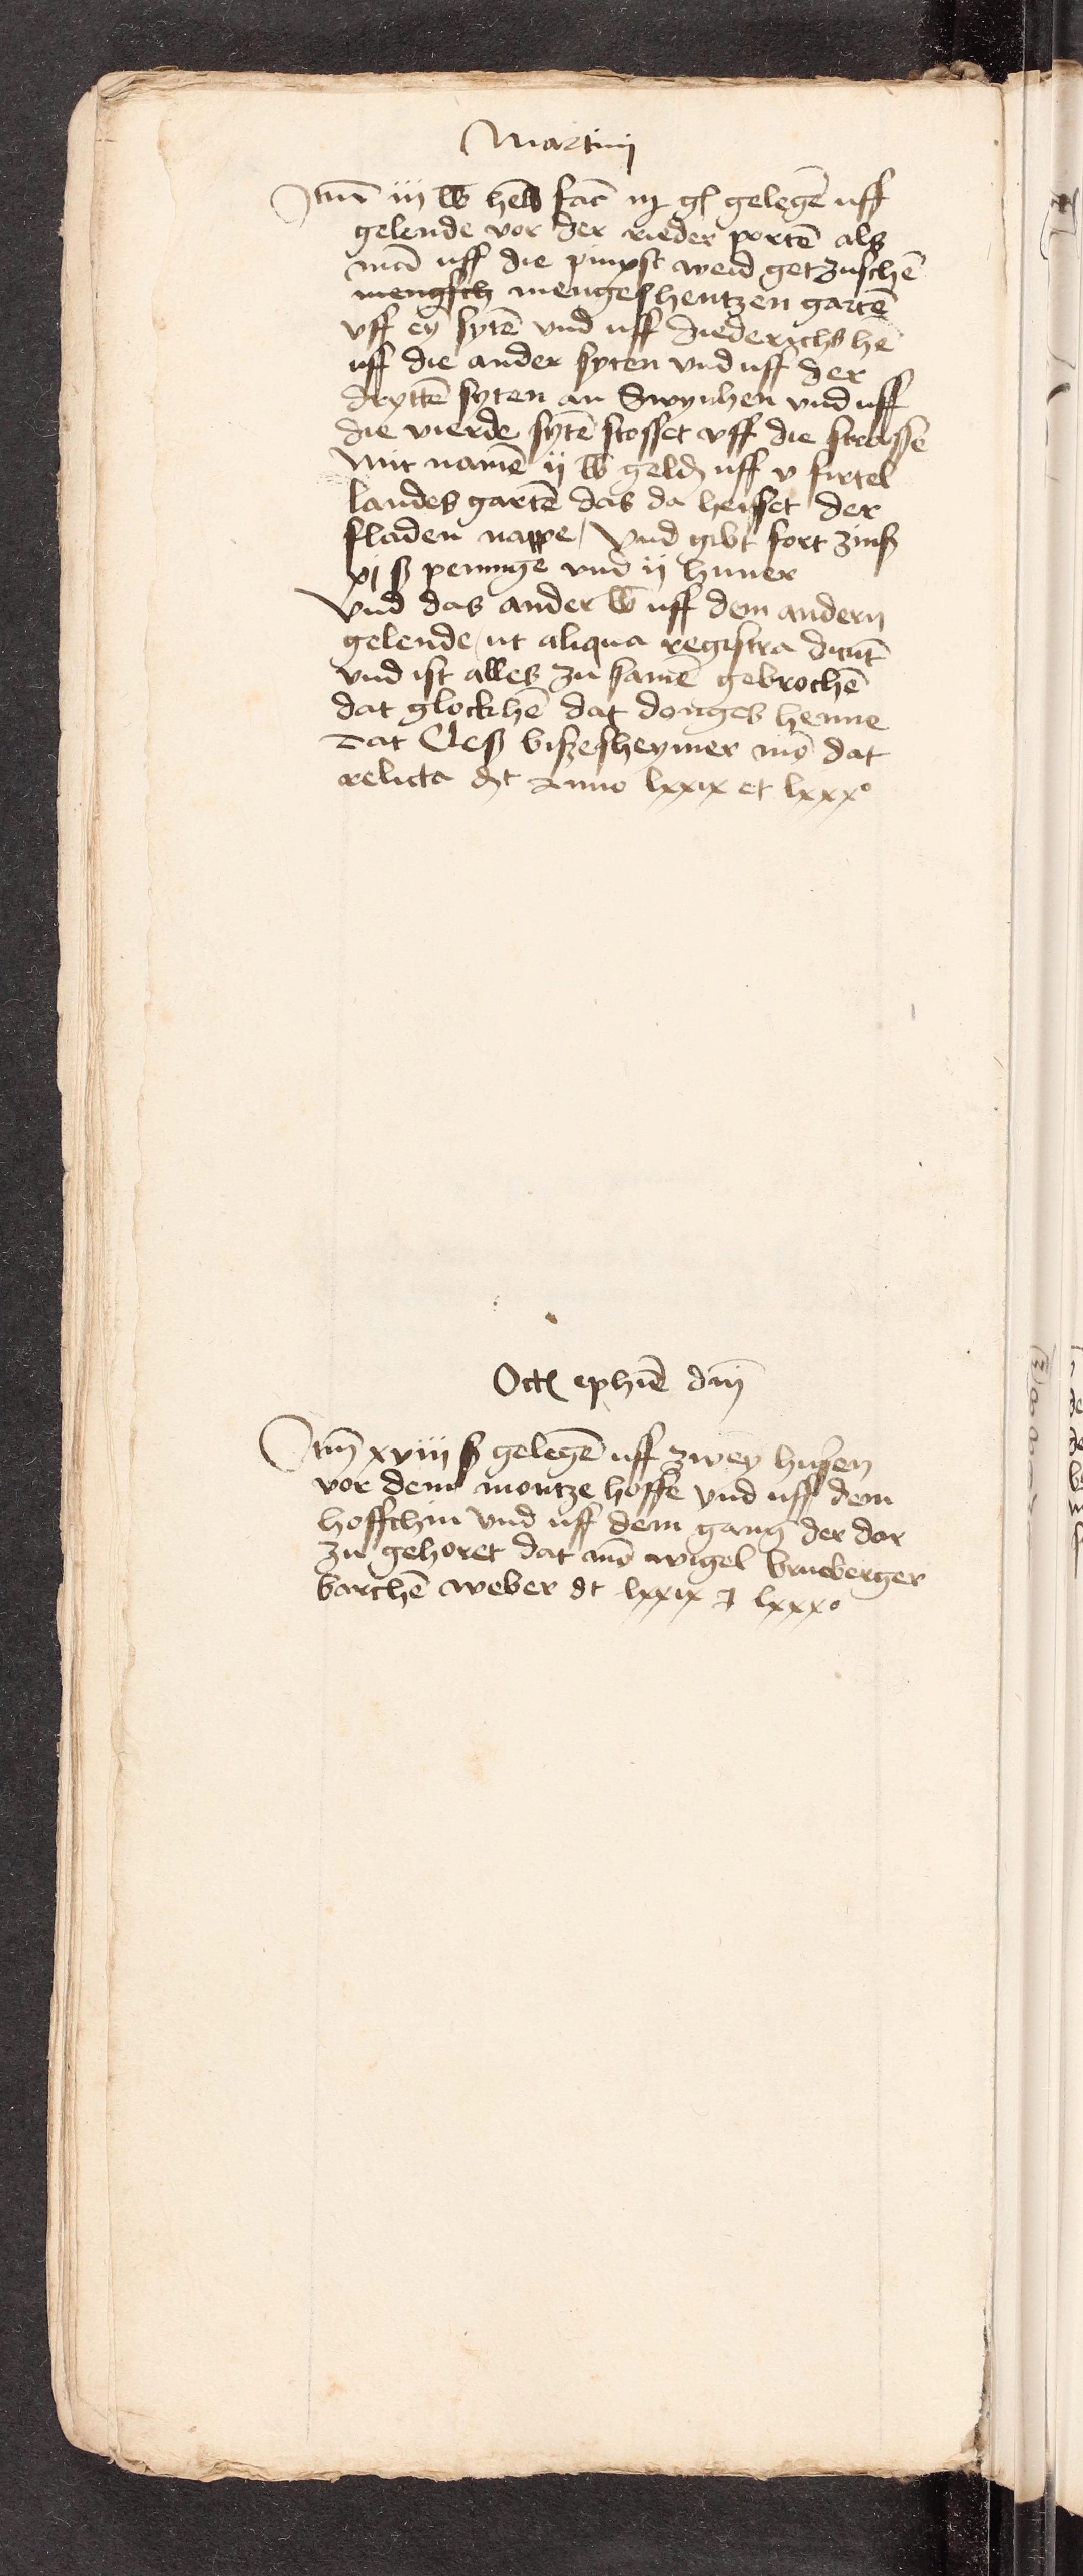 Martinj
Itm̄ iij lb hell̄ fac̄ gl̄ gelegē uff
gelende vor der rieder portē als
mā uff die pinxst weid get zuschē
mengsch mengeshentzen gartē
vff ey sytē und uff diederichs hē
uff die ander syten und uff der
dryttē syten an Swynhen und uff
die vierde sytē stosset vff die strasse
Mit namē ij lb geld uff v firtel
landes gartē das da heisset der
fladen nappe / Und gibt fort zinß
vj ß pennige und ij huner
Und das ander lb uff dem andern
gelende / ut aliqua registra dicūt
und ist alles zu samē gebrochē
dat glockhē dat donges henne
Dat Cleß bißesheymer mō dat
relicta dt Anno lxxix et lxxxº
Oct ephiē dnj
Itm̄ xviij ß gelegē uff zwey husen
vor dem montze hoffe und uff dem
hoffchin und uff dem gang der dar
zu gehoret dat mō wigel bruberger
barchē weber dt lxxix lxxxº